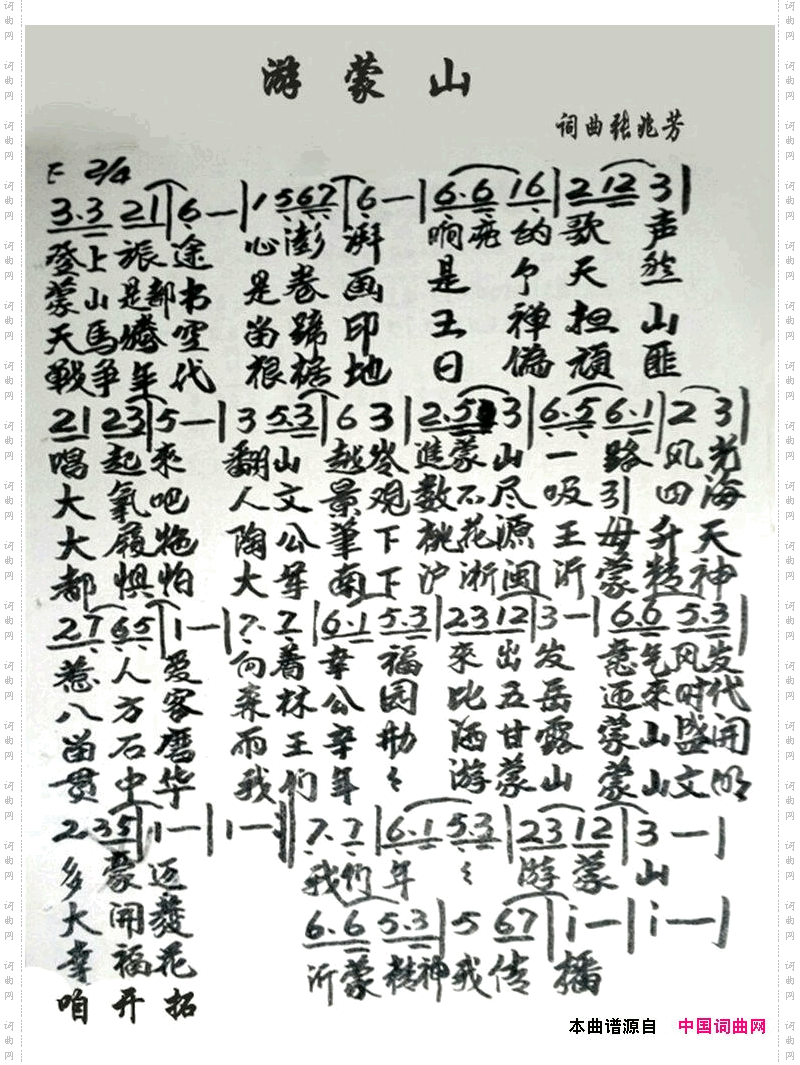 游蒙山
词曲张兆芳
F 2/4
3·3 21|6 —|1 567|6 —|6·6 16|2 12 3|
登上旅途 心澎湃 响亮的歌声
蒙山是部书 是卷画 是个天然
天马腾空 留蹄印 王禅担山
戰争年代 根据地 日伪顽匪
21 23|5 —|3 5·3|6 3|2·5 3|6·5 6·1|2 3|
唱起来 翻山越岭進蒙山 一路风光
大氧吧 人文景观数不尽 吸引四海
大屐拖 陶公筆下桃花源 王母升天
都惧怕 大军南下沪浙闽 沂蒙精神
27 65|1 —|7· 7|6·1 5·3|23 12|3 —|6·6 5·3|
惹人爱 向着幸福来出发 意气风发
八方客 森林公园比五岳 迎来时代
留石磨 雨王辛勤洒甘露 蒙山盛开
贯中华 我们年年游蒙山 蒙山文明
2· 35|1 —|1 —‖ 7·7|6·1 5·3|23 12|3 —|
多豪迈 我们年年游蒙山
大開發 6·6 5·3|5 67|i —|i —|
幸福花 沂蒙精神我传播
咱开拓
本曲谱源自 中国词曲网
词曲网